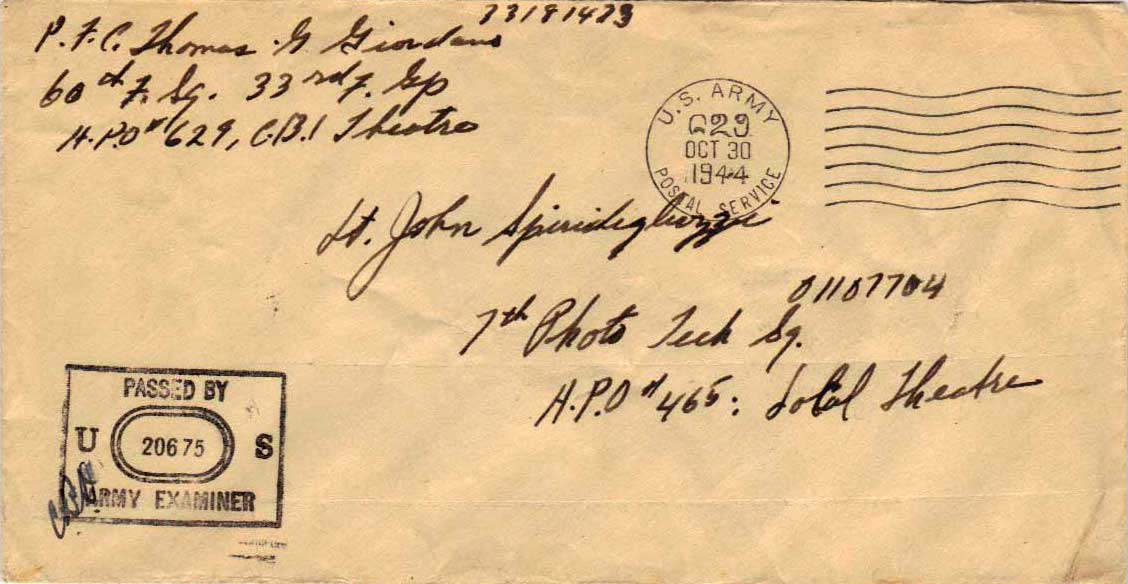 33181423
P.F.C. Thomas G Giordano
60th F. Sq. 33rd F. Gp
A.P.O # 629, C.B.I Theatre
U.S. ARMY
629
OCT 30
1944
POSTAL SERVICE
Lt. John
01107704
7th Photo Tech Sq.
A.P.O # 465: Local Theatre
PASSED BY
U 20675 S
ARMY EXAMINER